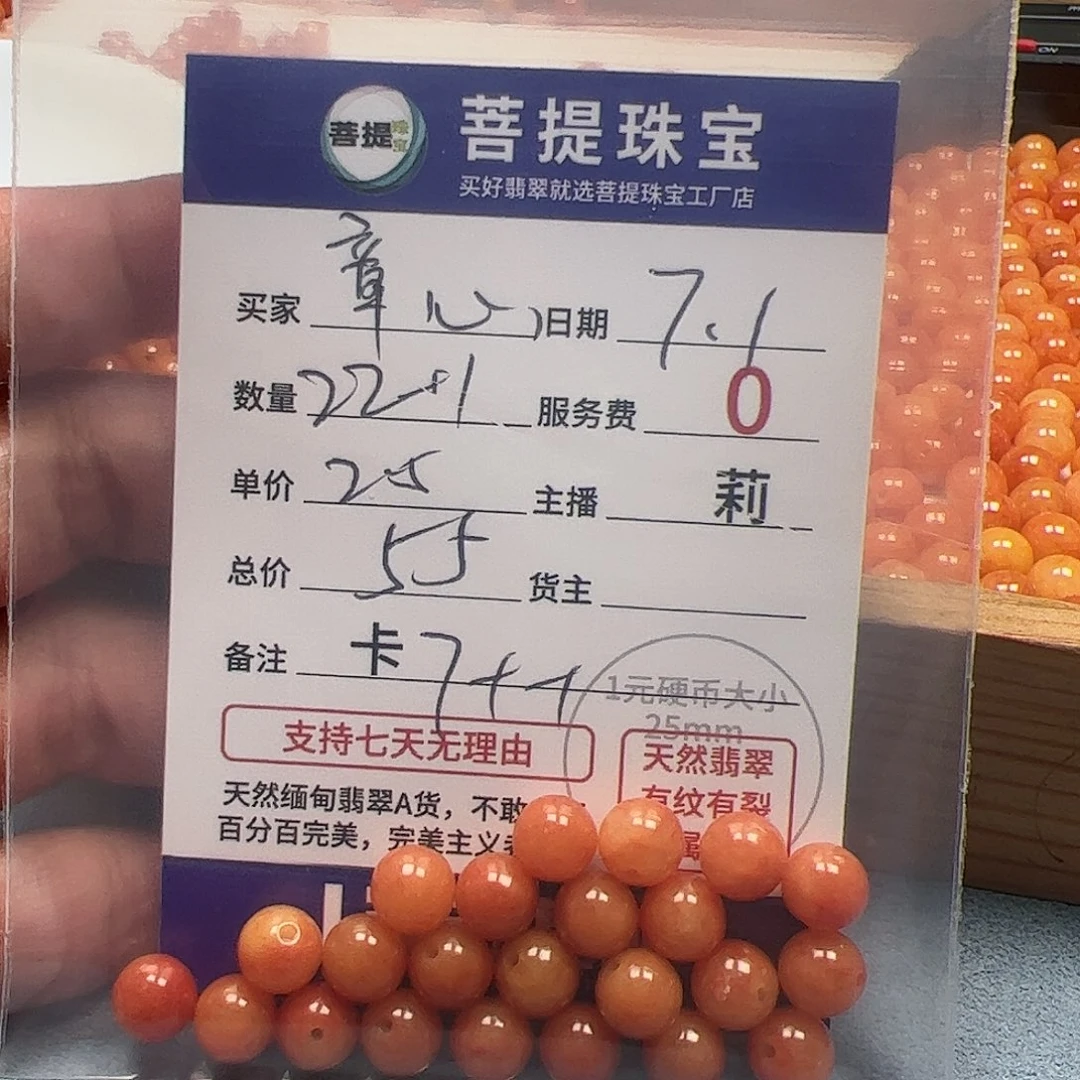 菩提珠宝
菩提珠宝
买好翡翠就选菩提珠宝工厂店
买家 章心 日期 7.1
数量 22+1 服务费 0
单价 25 主播 莉
总价 55 货主
备注 卡7++
1元硬币大小
25mm
支持七天无理由
天然翡翠
有纹有裂
属
天然缅甸翡翠A货，不敢
百分百完美，完美主义
ON